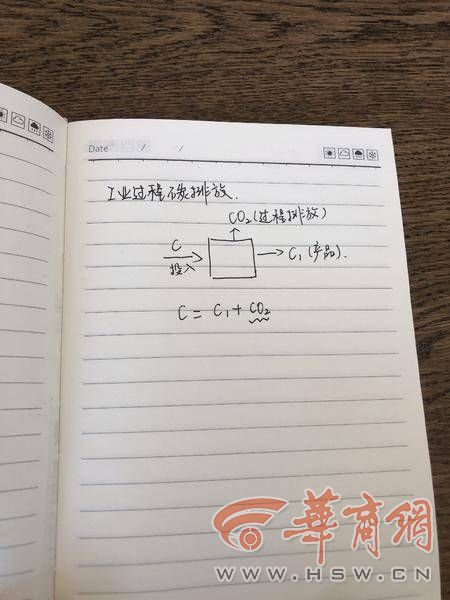 Date / /
工业过程碳排放.
CO₂(过程排放)
C
投入
C₁(产品).
C = C₁ + CO₂
華商網
WWW.HSW.CN